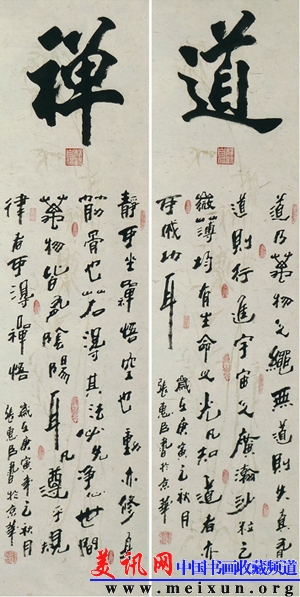 道
道乃物之繩無道則失真有
道則行進宇宙之廣瀚沙粒之
微薄均有生命之光凡知道者亦
可成功耳 歲在庚寅之秋月
張惠臣書於京華
禪
靜可坐禪悟空也動亦修身
筋骨也若得其法必先淨心世間
萬物皆有陰陽耳凡尊乎規
律者可得禪悟 歲在庚寅年之秋月
張惠臣書於京華
美讯网 中国书画收藏频道
www.meixun.org